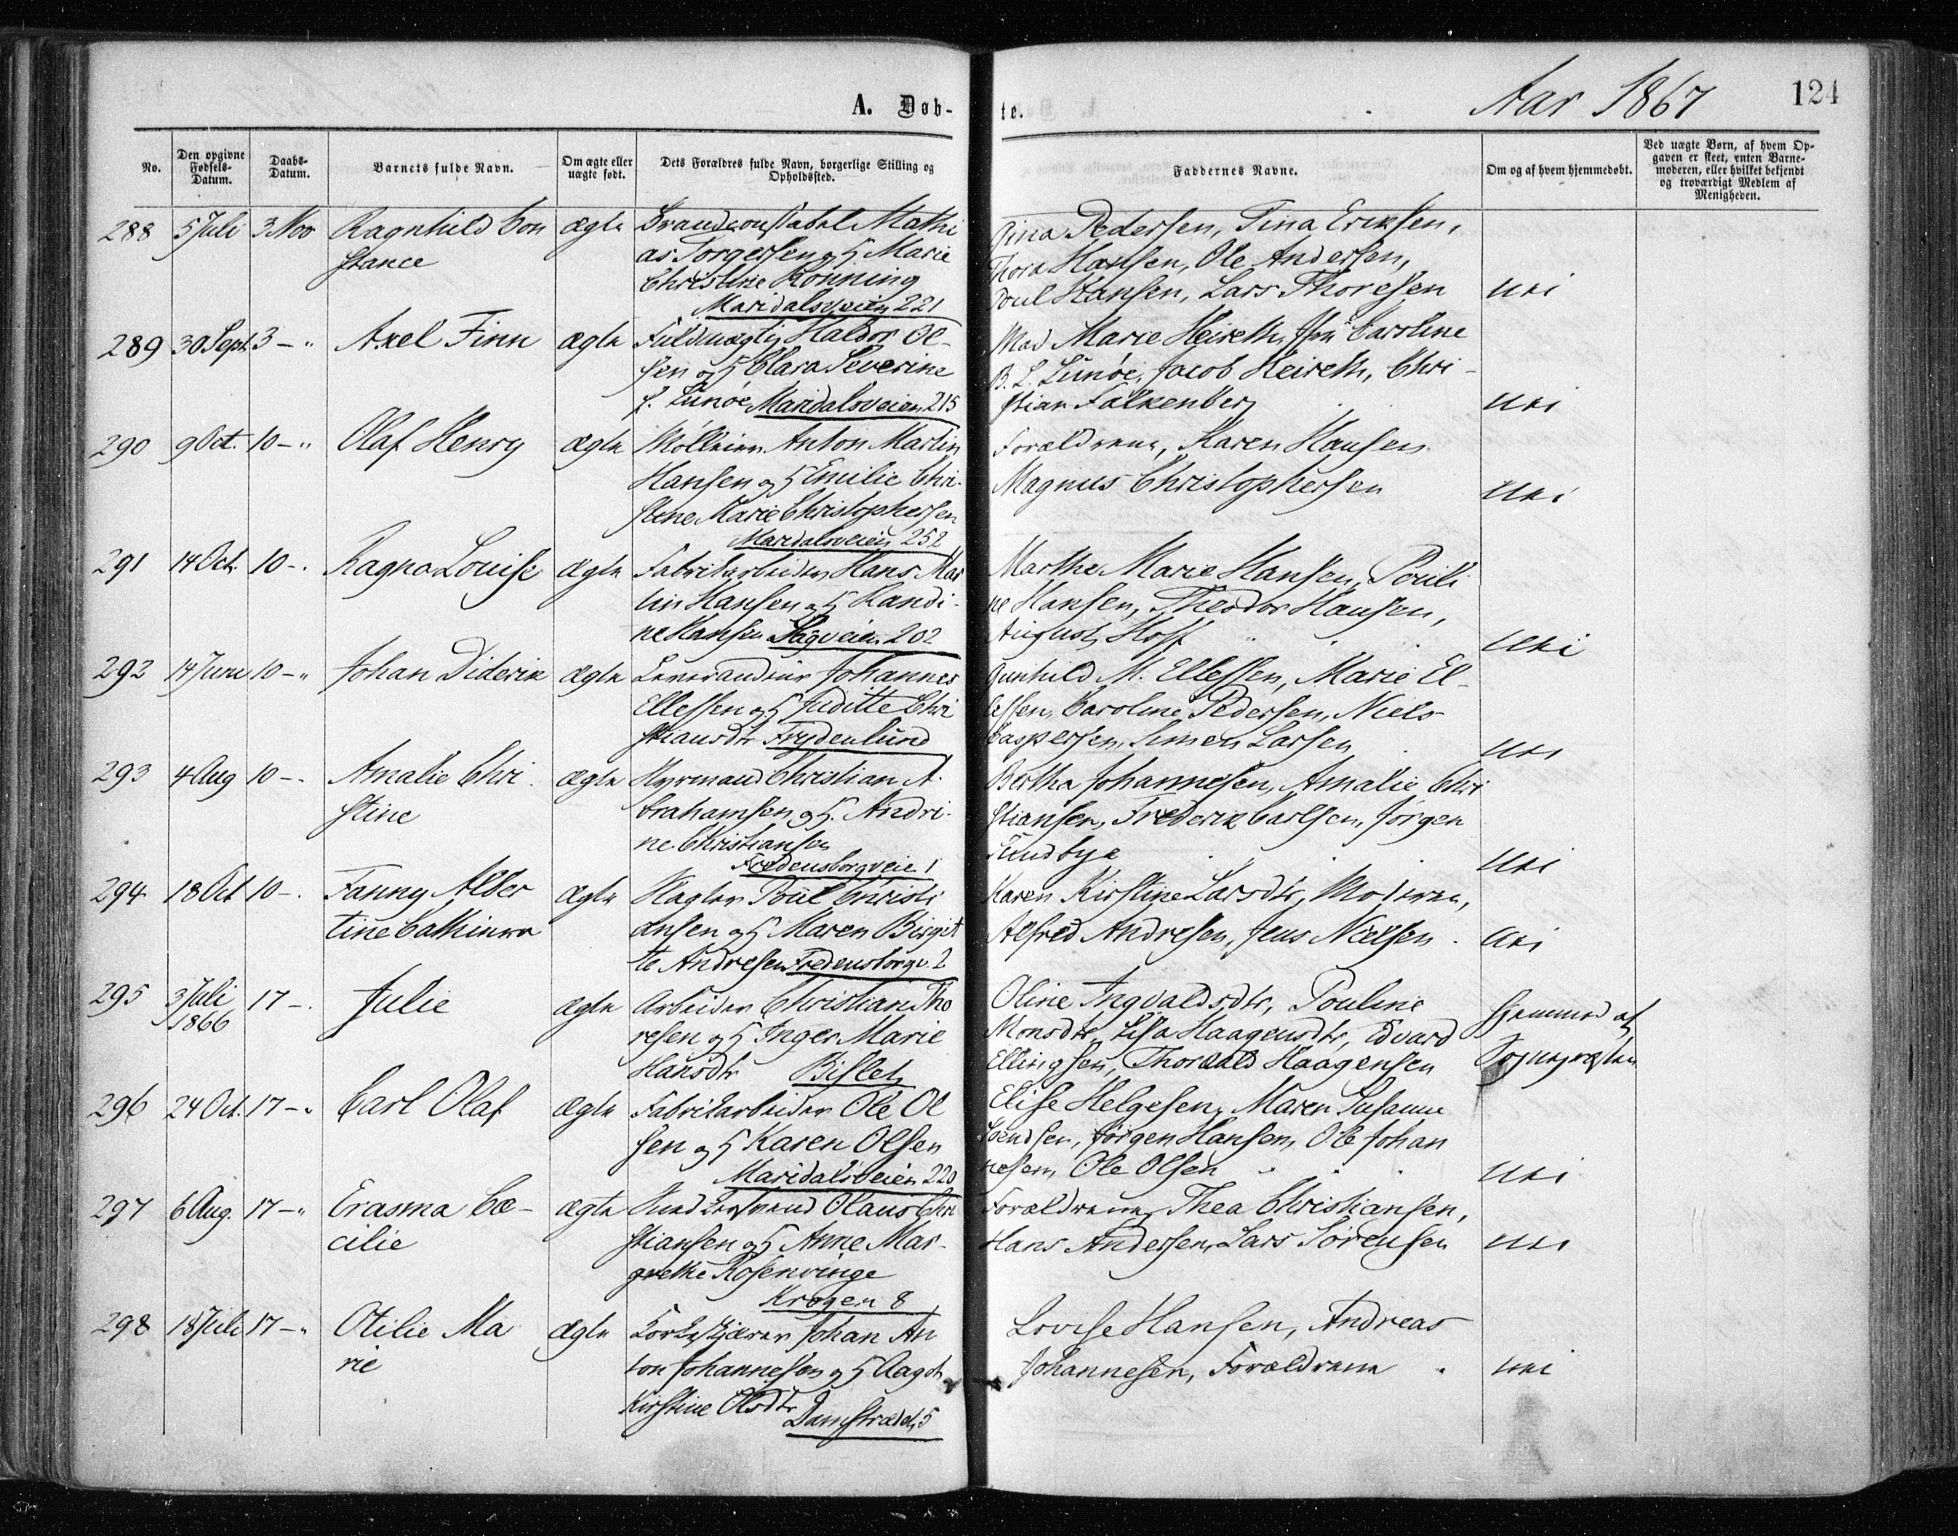 A. Døb-
te.
Aar 1867
124
No.
Den opgivne Fødsels-Datum.
Daabs-Datum.
Barnets fulde Navn.
Om ægte eller uægte født.
Dets Forældres fulde Navn, borgerlige Stilling og Opholdssted.
Faddernes Navne.
Om og af hvem hjemmedøbt.
Ved uægte Børn, af hvem Op-
gaven er skeet, enten Barne-
moderen, eller hvilket bekjendt
og troværdigt Medlem af
Menigheden.
288 5 Juli 3 Nov Ragnhild Con ægte Brandconstabel Mathi
stance as Torgersen og H Marie
Christine Rønning
Maridalsveien 221
Gina Pedersen, Tina Eriksen,
Thora Hansen, Ole Andersen,
Poul Hansen, Lars Thoresen
289 30 Sept. 3 - " Axel Finn ægte Fuldmægtig Haldor Ol-
sen og H Clara Severine
f. Lunøe Maridalsveien 215
Mad Marie Heireth, Caroline
B. L. Lunøe, Jacob Heireth, Chri-
stian Falkenberg
290 9 Oct. 10 - " Olaf Henry ægte Anton Martin
Hansen og H Emilie Chri-
stine Marie Christophersen
Maridalsveien 252
Forældrene, Karen Hansen
Magnus Christophersen
291 14 Oct. 10 - . Ragna Louise ægte Fabrikarbeider Hans Mar
tin Hansen og H Randi-
ne Hansen Sagveien 202
Marthe Marie Hansen, Pouli
ne Hansen, Theodor Hansen,
August Hoff
292 14 Juni 10 - " Johan Diderik ægte Leverandeur Johannes
Ellefsen og H Juditte Chri
stiansdtr Frydenlund
Gunhild M. Ellefsen, Marie El-
lefsen, Caroline Pedersen, Niels
Caspersen, Simen Larsen
293 4 Aug 10 - . Amalie Chri- ægte Hyrmand Christian A-
stine brahamsen og H. Andri-
ne Christiansen
Fredensborgveie 1
Bertha Johannesen, Amalie Chri
stiansen, Frederik Carlsen, Jørgen
Sundbye
294 18 Oct 10 - . Fanny Alber ægte Slagter Poul Christi
tine Cathinca ansen og H Maren Birgit
te Andresen Fredensborgv. 2
Karen Kirstine Larsdtr, Moderen,
Alfred Andresen, Jens Nielsen
295 3 Juli 1866 17 - . Julie ægte Arbeider Christian Tho
resen og H Inger Marie
Hansdtr Bislet
Oline Ingvaldsdtr, Pouline
Monsdtr, Lisa Haagensdtr, Edvard
Ellingsen, Thorvald Haagensen
Hjemmed af
Sognepræsten
296 24 Oct. 17 - " Carl Olaf ægte Fabrikarbeider Ole Ol
sen og H Karen Olsen
Maridalsveien 220
Elise Helgesen, Maren Susanne
Svendsen, Jørgen Hansen, Ole Johan
nesen, Ole Olsen
297 6 Aug. 17 - " Erasma Cæ- ægte Olaus Chri
cilie stiansen og H Anne Mar-
grethe Rosenvinge
Krogen 8
Forældrene, Thea Christiansen,
Hans Andersen, Lars Sørensen
298 18 Juli 17 - " Otilie Ma ægte Korkeskjærer Johan An
rie ton Johannesen og H Aagot
Kirstine Olsdtr Damstrædet 5
Lovise Hansen, Andreas
Johannesen, Forældrene